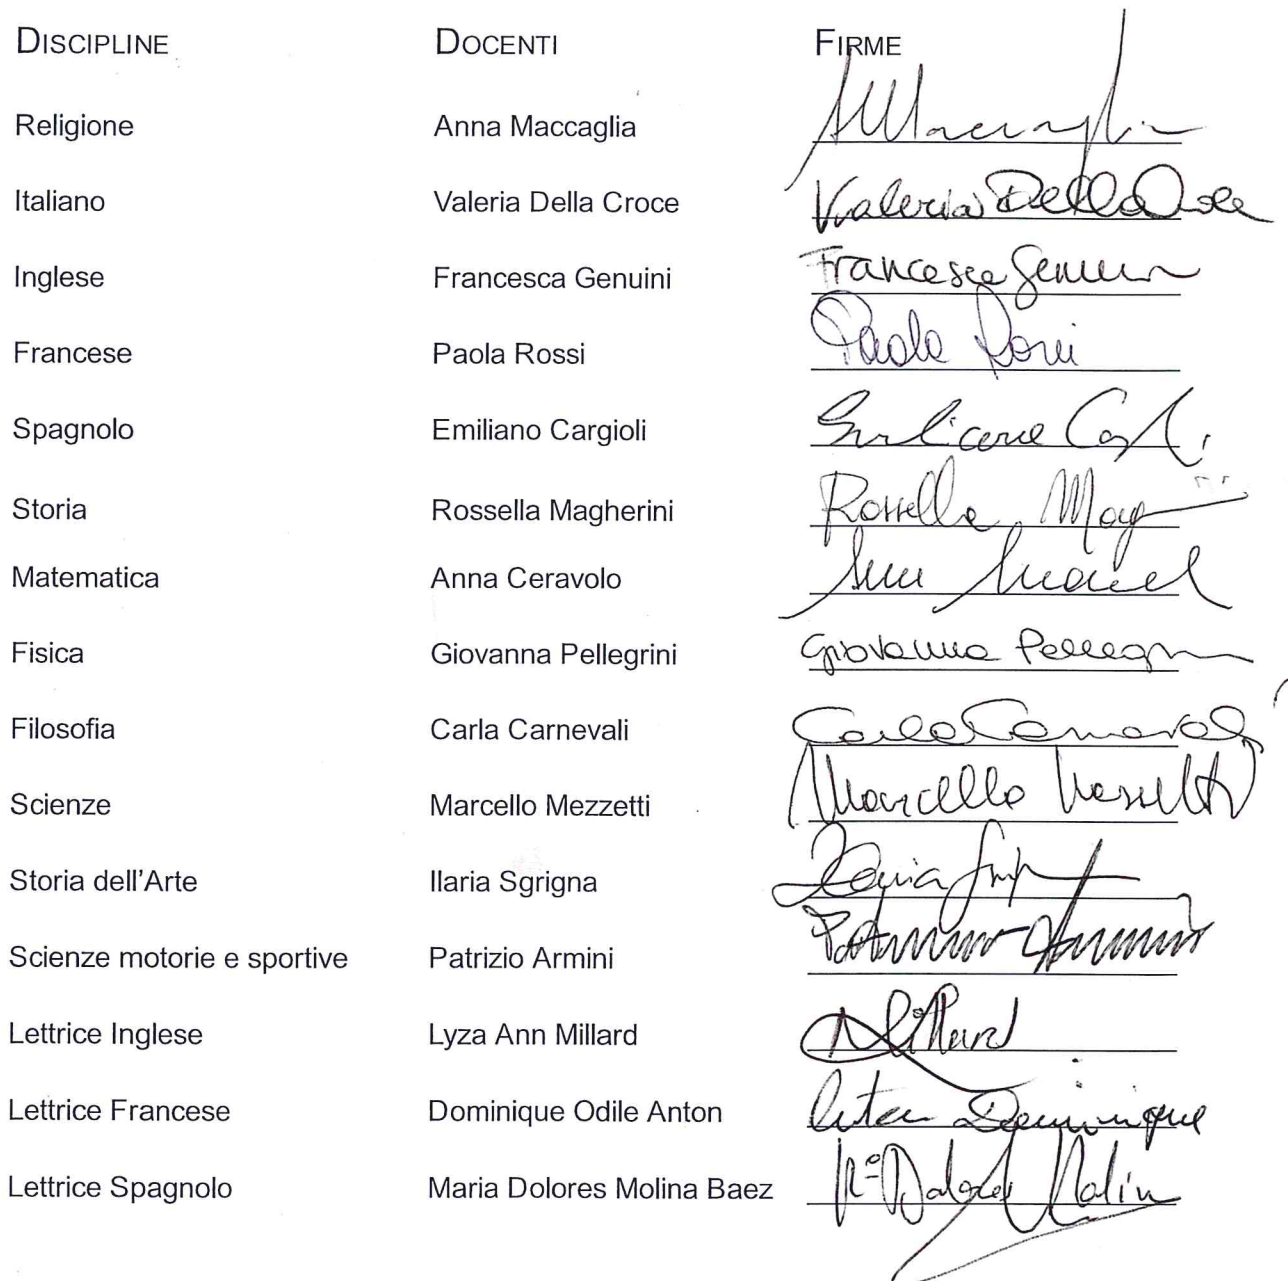 DISCIPLINE DOCENTI FIRME
Religione Anna Maccaglia AMaccaglia
Italiano Valeria Della Croce Valeria Della Croce
Inglese Francesca Genuini Francesca Genuini
Francese Paola Rossi Paola Rossi
Spagnolo Emiliano Cargioli Emiliano
Storia Rossella Magherini Rossella
Matematica Anna Ceravolo
Fisica Giovanna Pellegrini Giovanna
Filosofia Carla Carnevali Carla Carnevali
Scienze Marcello Mezzetti Marcello Mezzetti
Storia dell'Arte Ilaria Sgrigna Ilaria
Scienze motorie e sportive Patrizio Armini
Lettrice Inglese Lyza Ann Millard Millard
Lettrice Francese Dominique Odile Anton Anton Dominique
Lettrice Spagnolo Maria Dolores Molina Baez Mª Dolores Molina